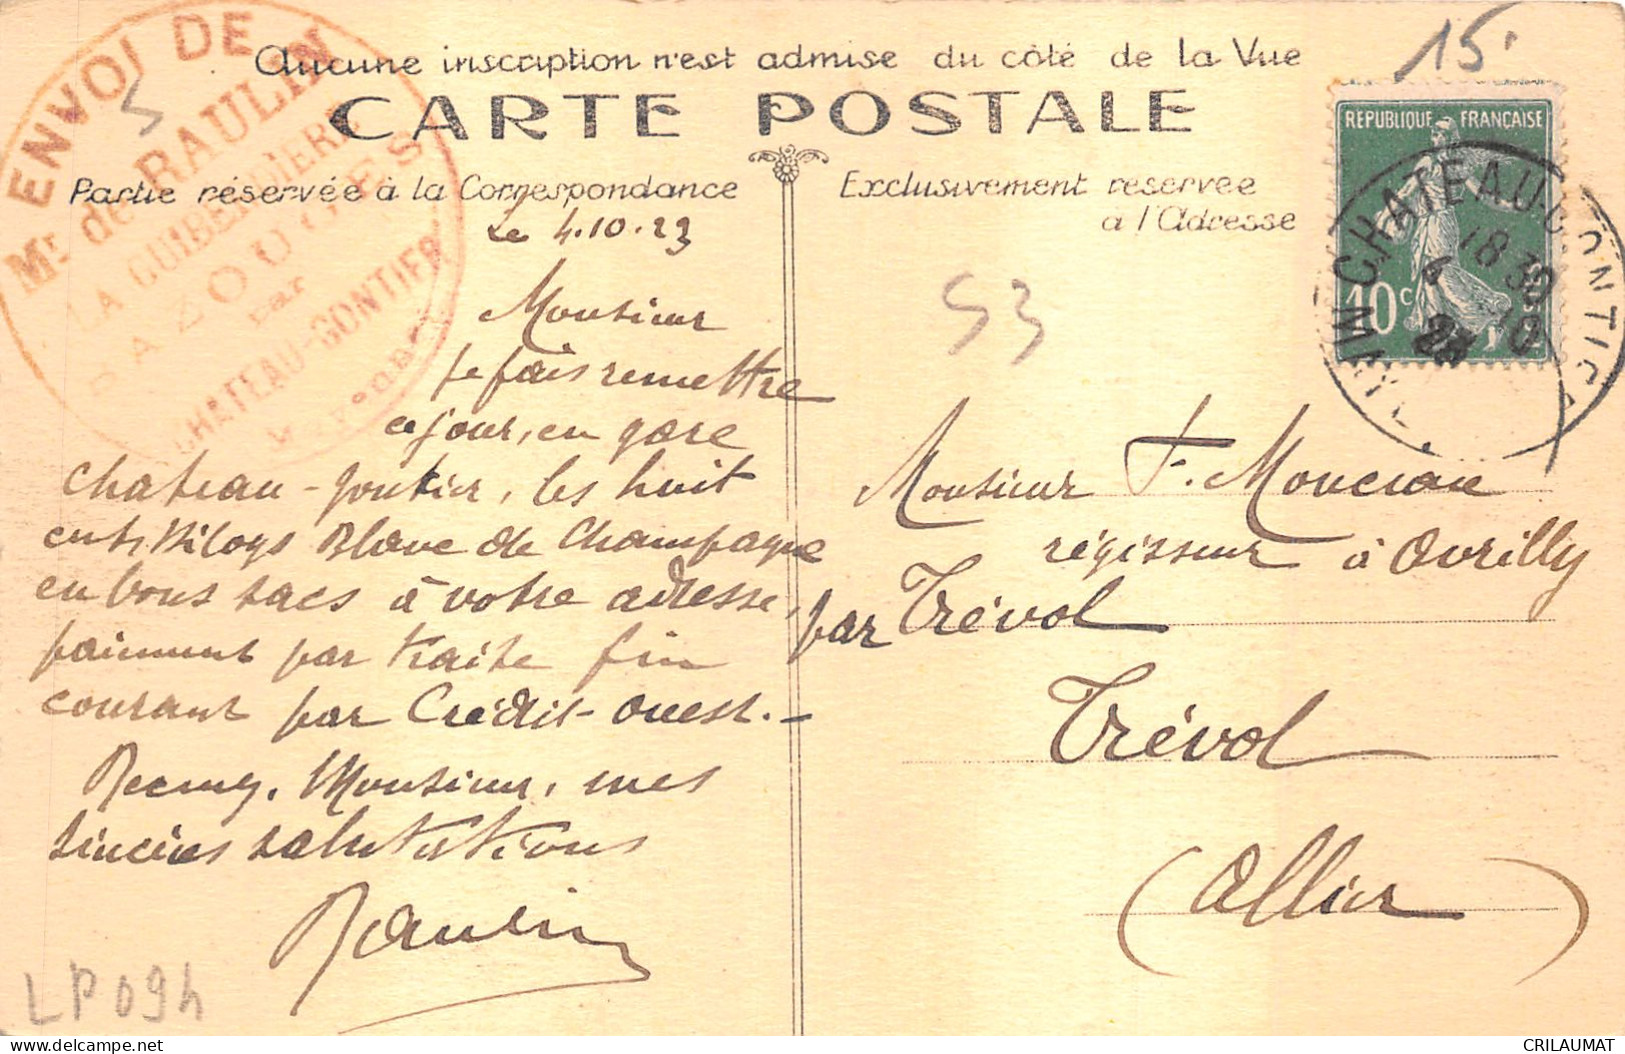 ENVOI DE
Mr de RAULIN
LA GUIBERDIÈRE
BAZOUGES
par
CHATEAU-GONTIER
Aucune inscription n'est admise du côté de la Vue
CARTE POSTALE
Partie réservée à la Correspondance
Le 4.10.23
Monsieur
Je fais remettre
ce jour, en gare
Chateau-Gontier, les huit
cents Kilogs Blanc de Champagne
en bons sacs à votre adresse,
paiement par traite fin
courant par Crédit-Ouest.-
Recevez, Monsieur, mes
sincères salutations
Raulin
LP094
Exclusivement réservée
à l'Adresse
15.
RÉPUBLIQUE FRANÇAISE
10c
CHATEAU-GONTIER
18 30
4 10
23
53
Monsieur F.
régisseur à Avrilly
par Trévol
Trévol
(Allier)
CRILAUMAT